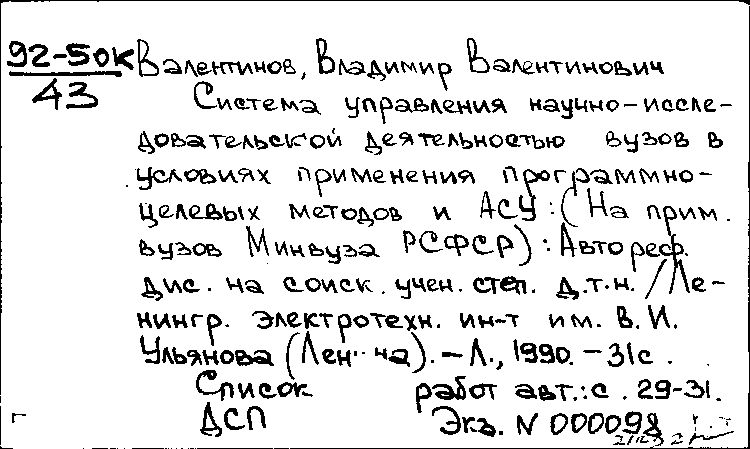 92-50к Валентинов, Владимир Валентинович
43
Система управления научно-иссле-
довательской деятельностью вузов в
условиях применения программно-
целевых методов и АСУ: (На прим.
вузов Минвуза РСФСР): Автореф.
дис. на соиск. учен. степ. д.т.н. / Ле-
нингр. электротехн. ин-т им. В. И.
Ульянова (Ленина). - Л., 1990. - 31с.
Список работ авт.: с. 29-31.
ДСП Экз. N 000098